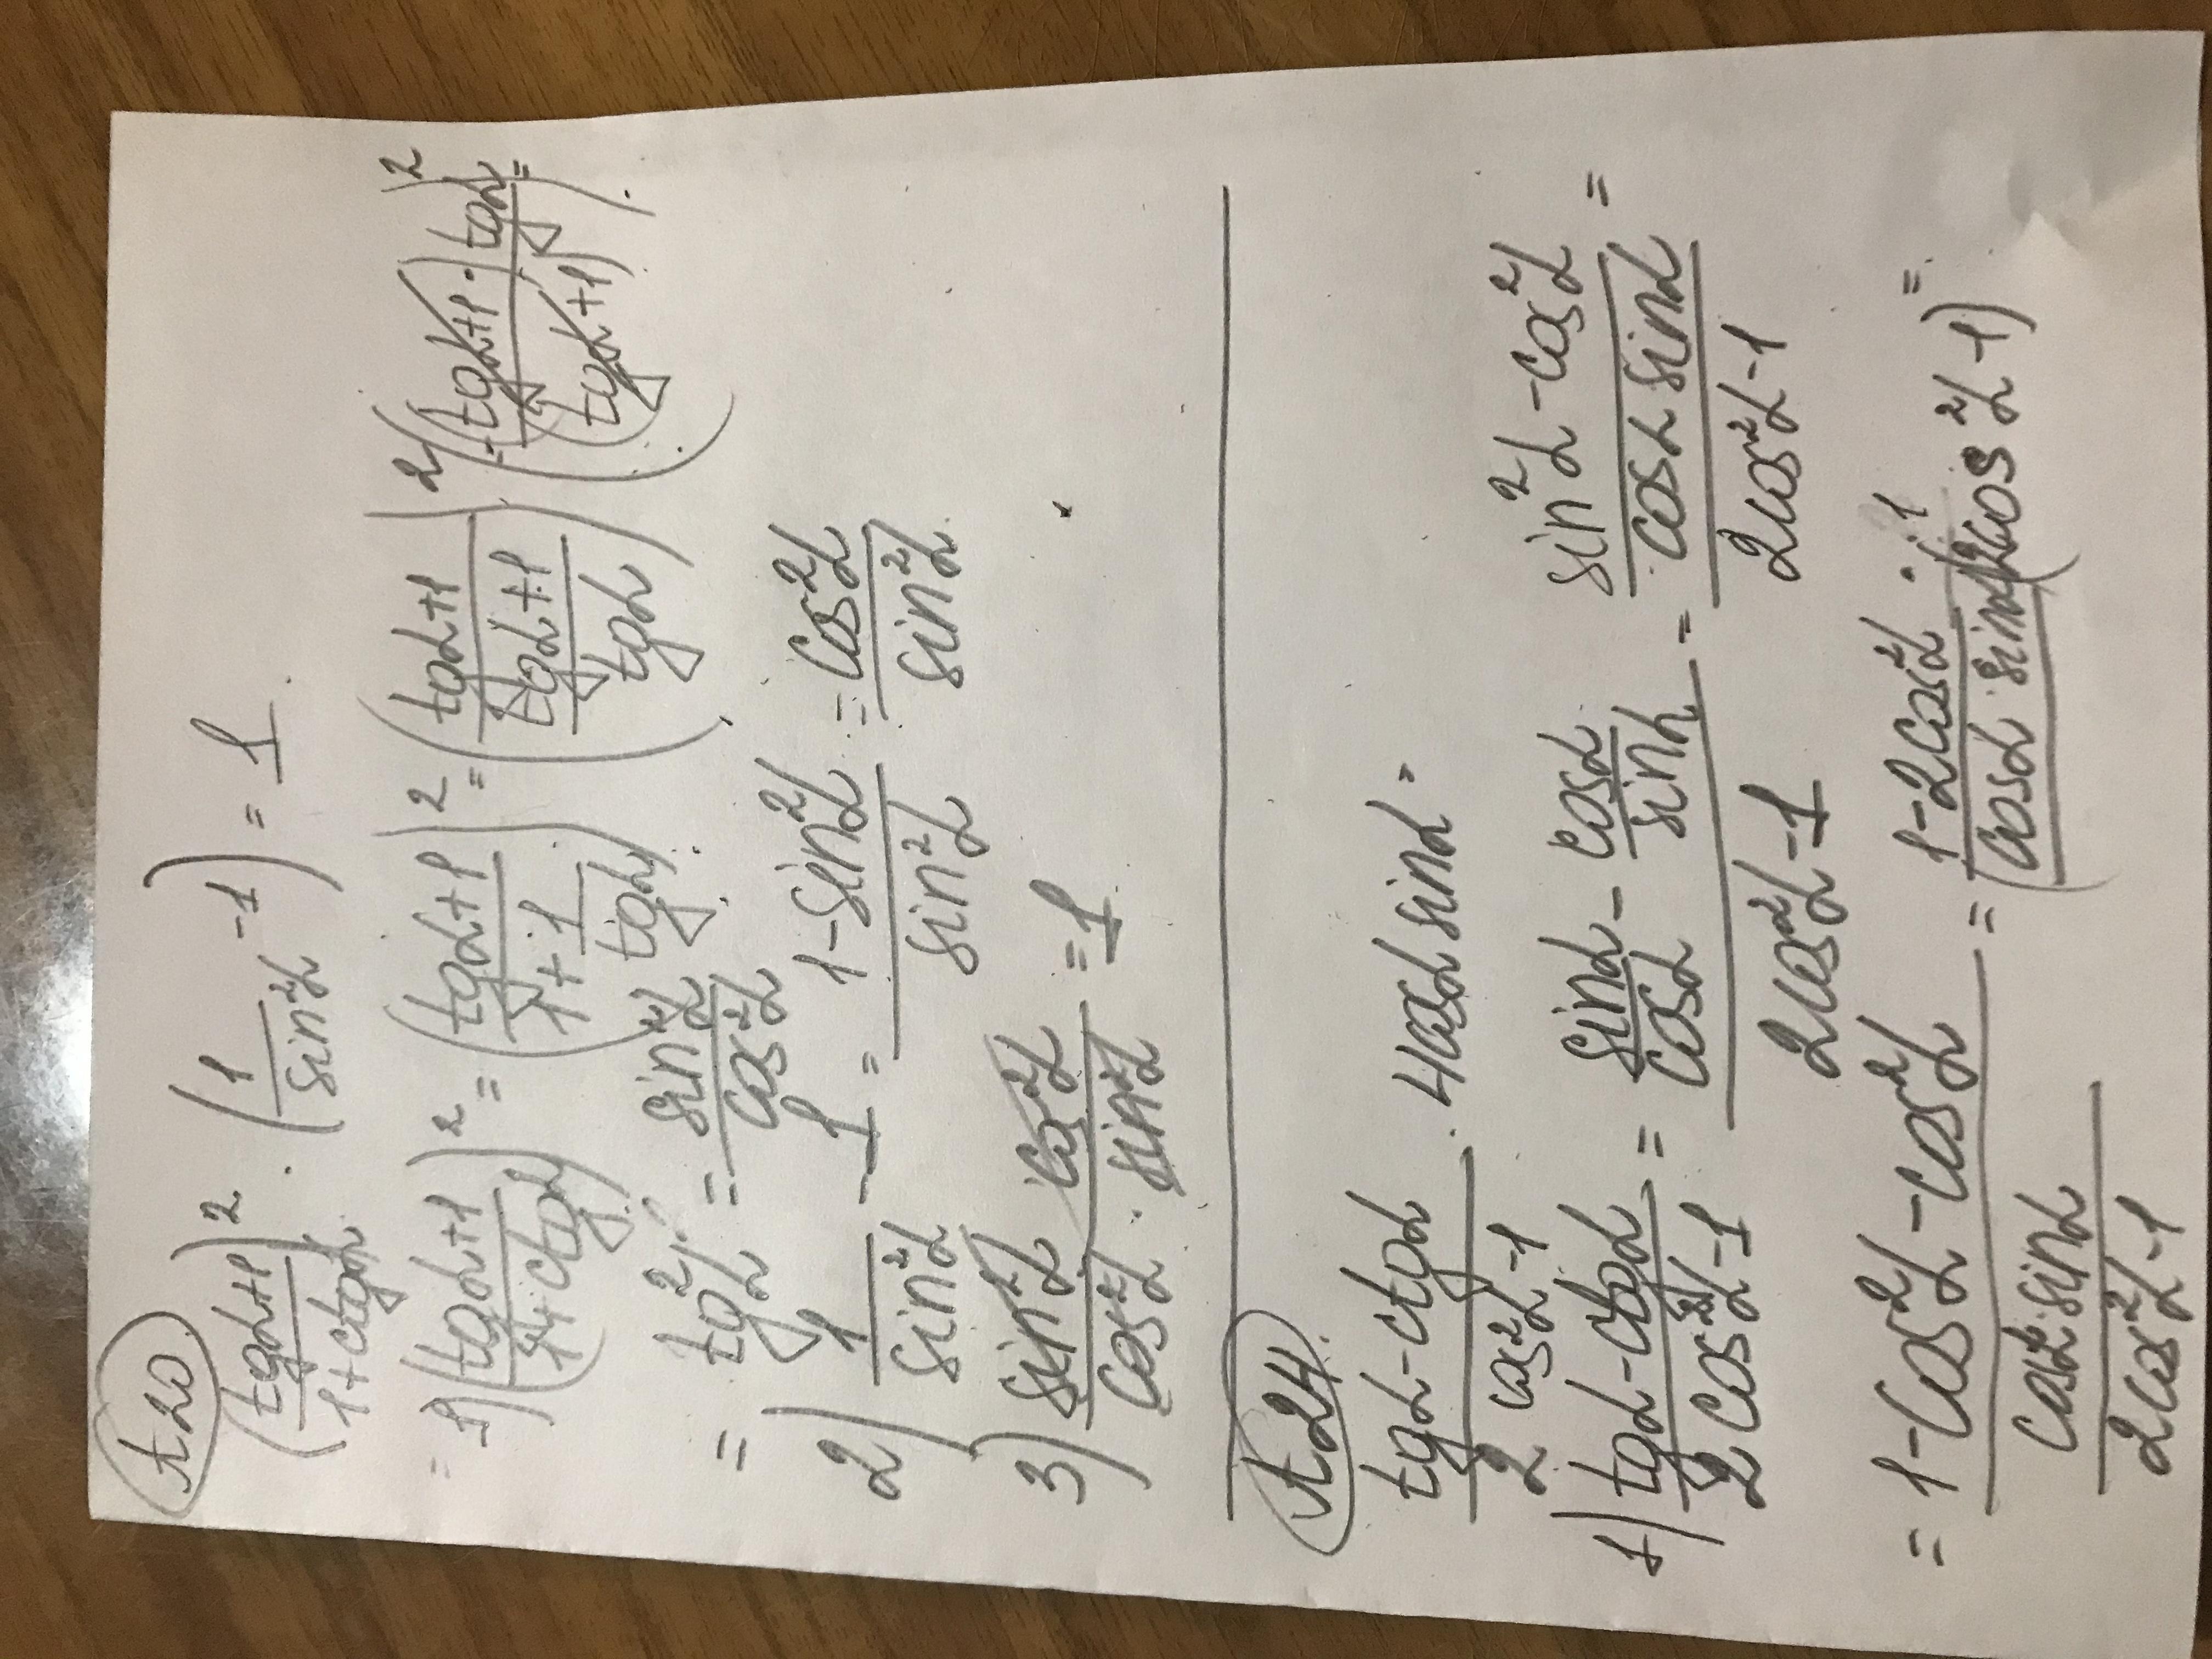 A20
((tgα+1)/(1+ctgα))² · (1/sin²α -1) = 1
= 1) ((tgα+1)/(1+ctgα))² = ((tgα+1)/(1+1/tgα))² = ((tgα+1)/((tgα+1)/tgα))² = ((tgα+1)·tgα/(tgα+1))² =
= tg²α = sin²α/cos²α
2) 1/sin²α - 1 = (1-sin²α)/sin²α = cos²α/sin²α
3) sin²α/cos²α · cos²α/sin²α = 1
A24
(tgα-ctgα)/(2cos²α-1) · 4cosα sinα =
1) (tgα-ctgα)/(2cos²α-1) = (sinα/cosα - cosα/sinα)/(2cos²α-1) = ((sin²α-cos²α)/(cosα sinα))/(2cos²α-1) =
= ((1-cos²α-cos²α)/(cosα·sinα))/(2cos²α-1) = (1-2cos²α)·1/(cosα·sinα(2cos²α-1)) =